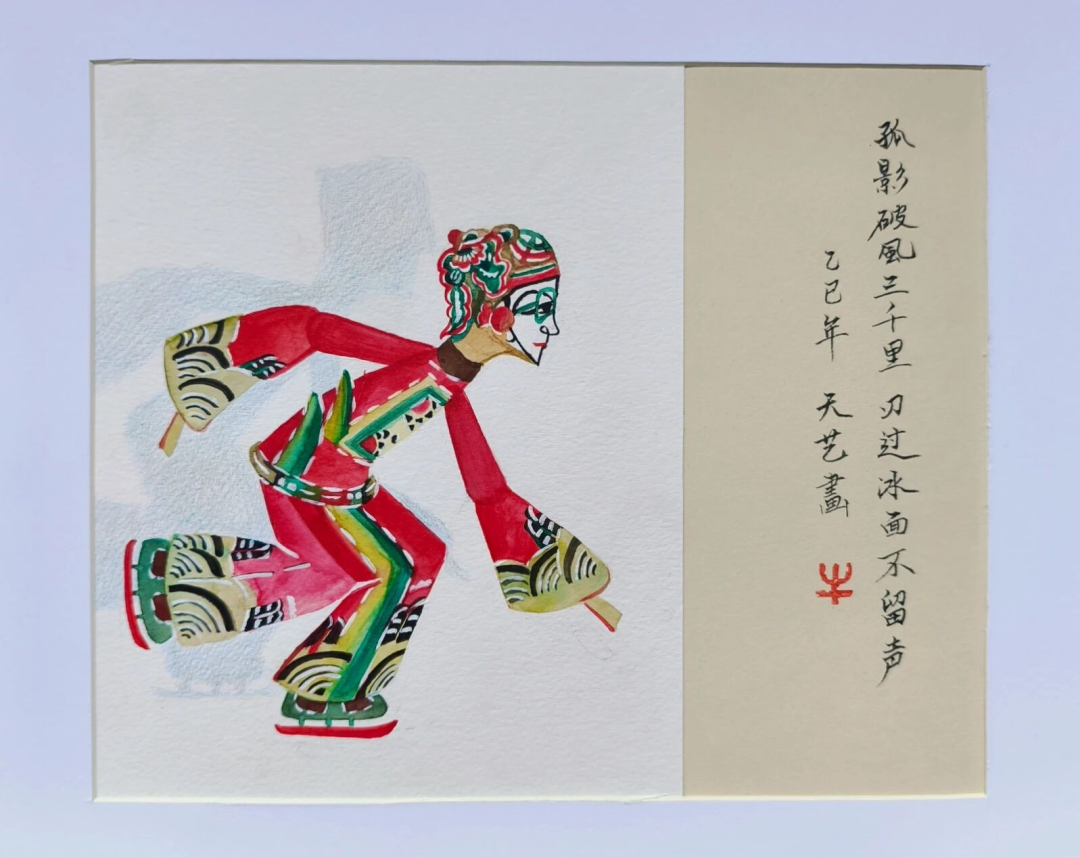 孤影破風三千里 刃过冰面不留声
乙巳年 天艺畫